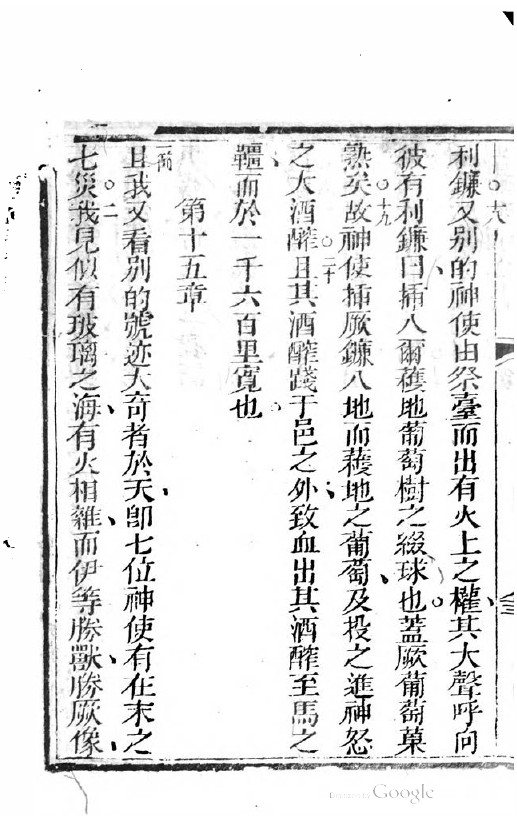 利鐮○十八又別的神使由祭臺而出有火上之權其大聲呼向
彼有利鐮曰插入爾穫地葡萄樹之綴球也蓋厥葡萄菓
熟矣○十九故神使插厥鐮入地而穫地之葡萄及投之進神怒
之大酒醡○二十且其酒醡踐于邑之外致血出其酒醡至馬之
韁而於一千六百里寬也
第十五章
一節且我又看別的號迹大奇者於天卽七位神使有在末之
七災○二我見似有玻璃之海有火相雜而伊等勝獸勝厥像
Digitized by Google